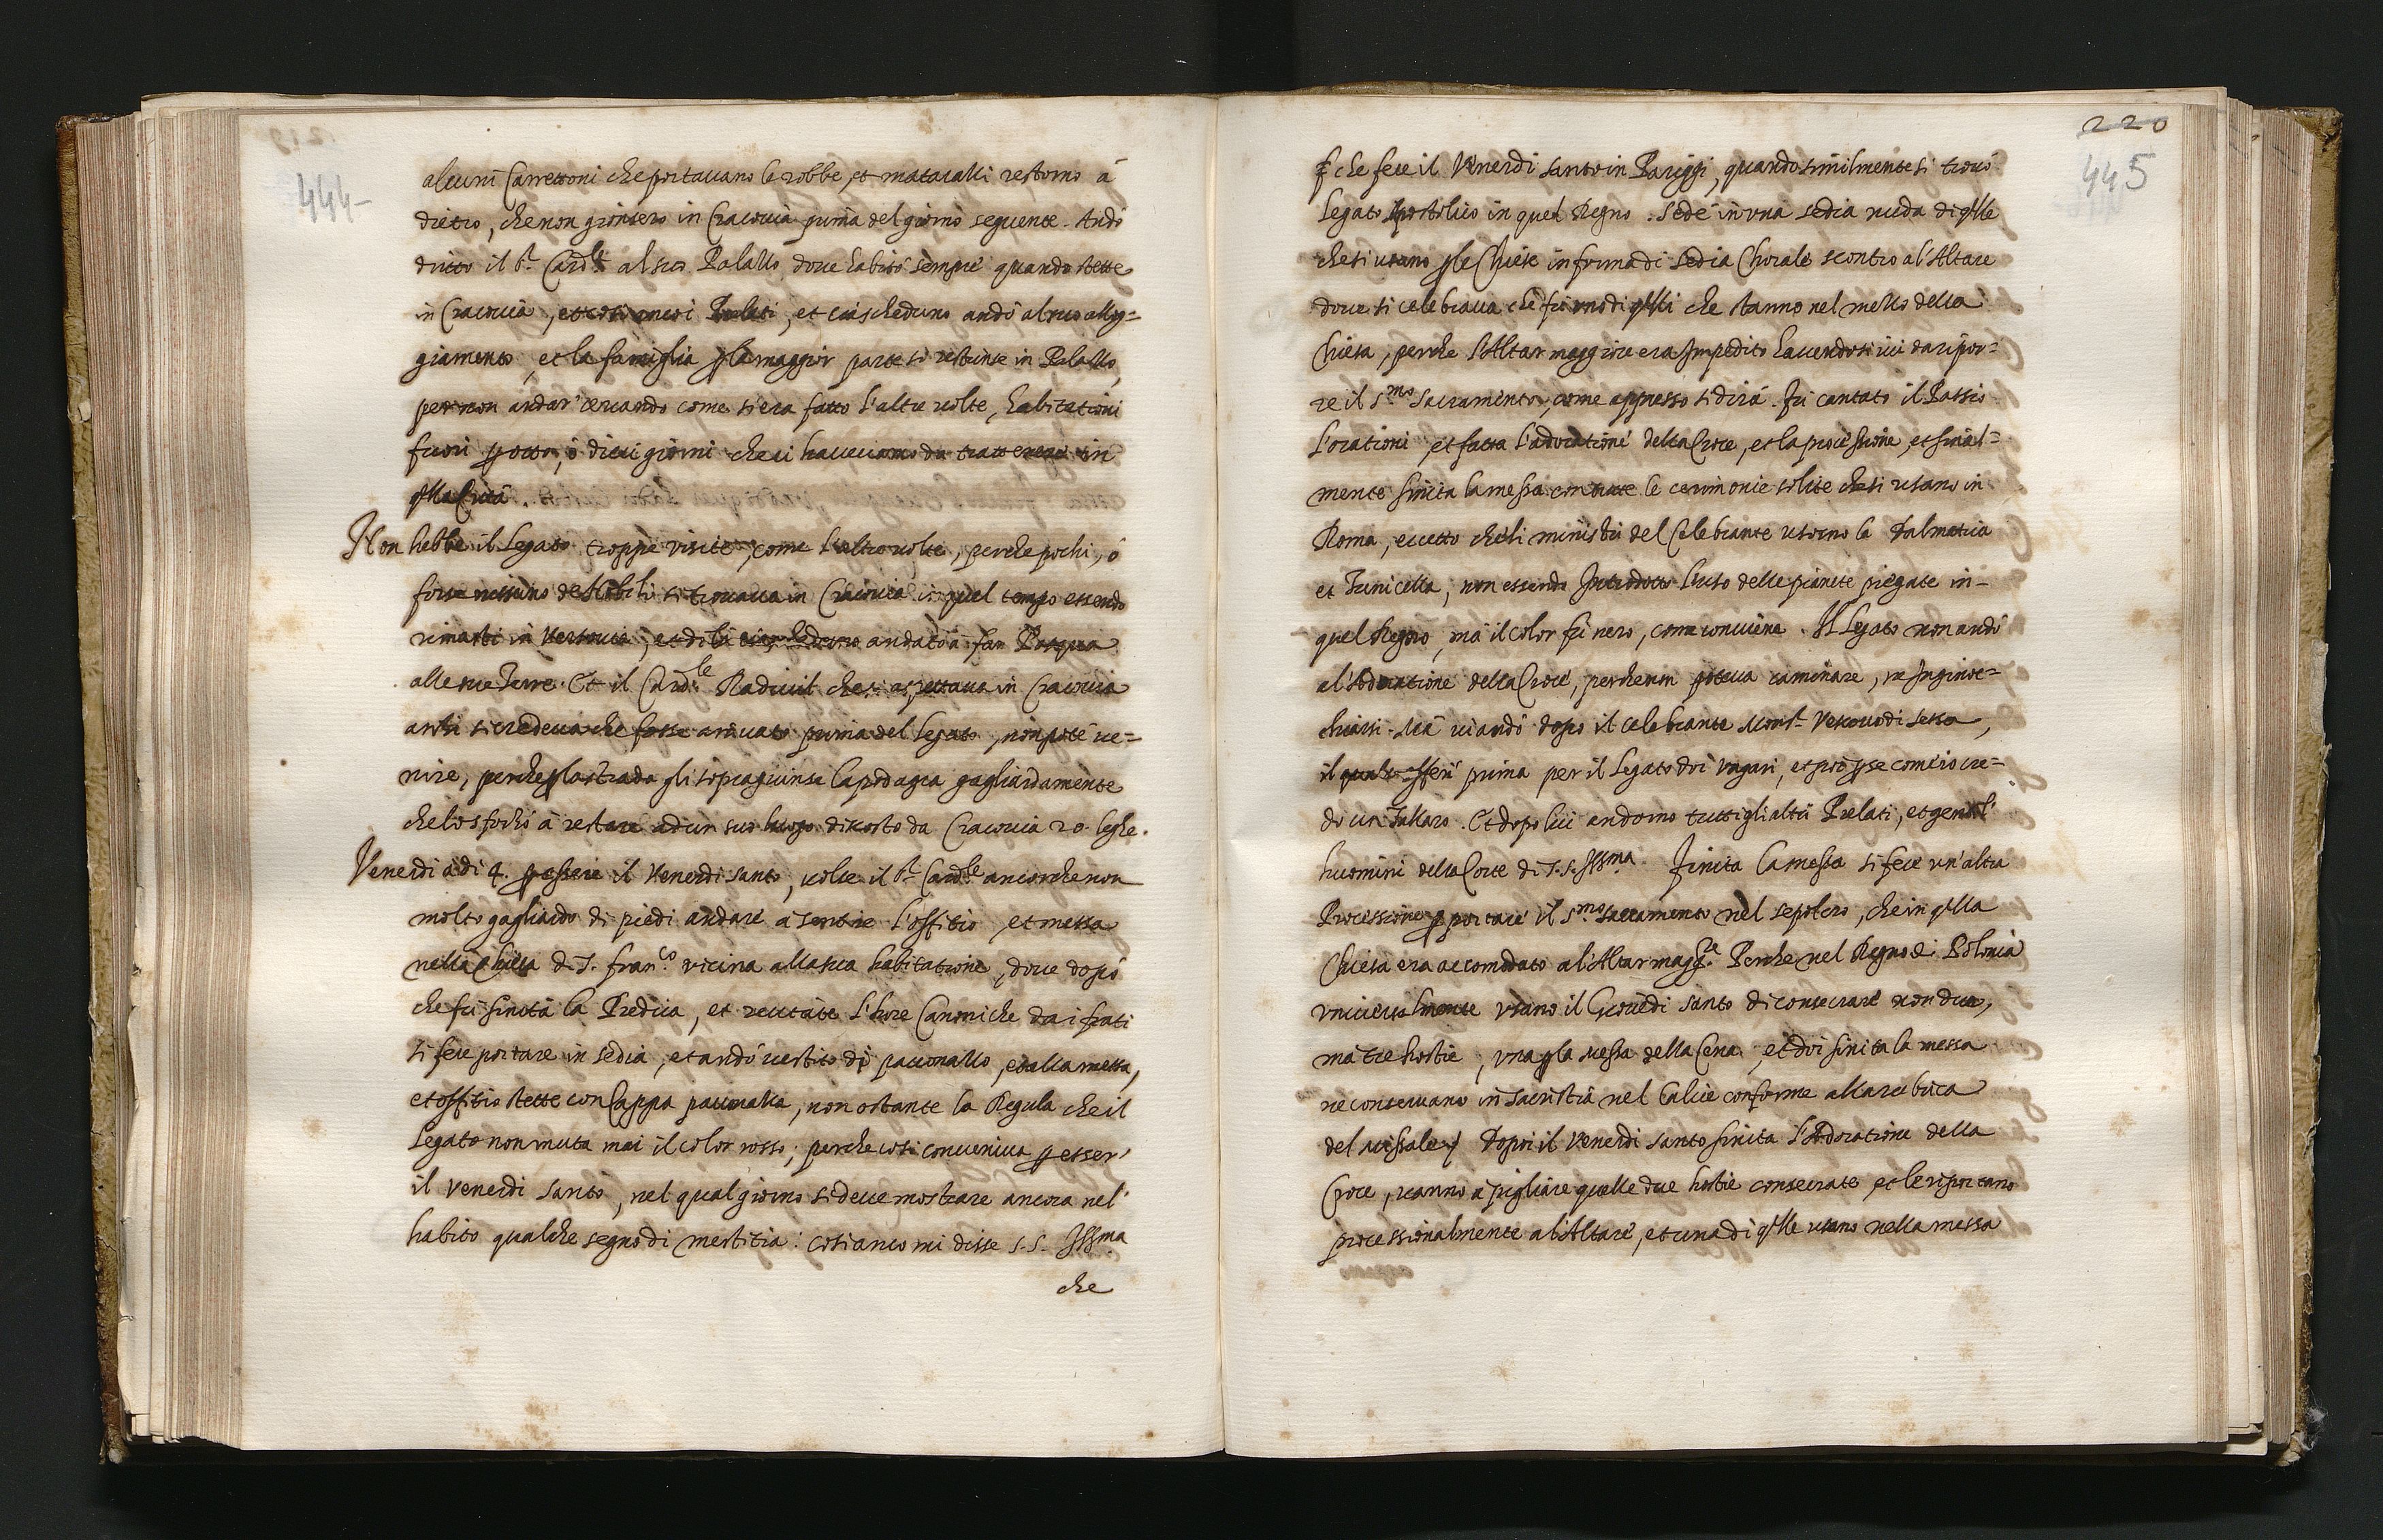 444
alcuni Carrettoni che portauano le robbe, et matarazzi restorno à
dietro, che non gionsero in Cracouia prima del giorno seguente. Andò
dritto il s.r Card.le al suo Palazzo doue habitò sempre quando stette
in Cracouia, et così li Prelati, et ciascheduno andò al suo allog=
giamento, et la famiglia p la maggior parte si restrinse in Palazzo,
per non andar cercando come si era fatto l'altre uolte, habitationi
fuori p otto, ò dieci giorni che ci haueuamo da trattenere in
qlla Città.
Non hebbe il Legato troppe visite, come l'altre uolte, perche pochi, ò
forse nissuno de Nobili si trouaua in Cracouia in quel tempo essendo
rimasti in Varsouia, et di là ciascheduno andato à far Pasqua
alle sue Terre. Et il Card.le Radiuil che si aspettaua in Cracouia
anzi si credeua che fosse arriuato prima del Legato, non potè ue=
nire, perche p la strada gli sopragiunse la podagra gagliardamente
che lo sforzò à restare ad un suo luogo discosto da Cracouia 20. leghe.
Venerdi à dì 4. p essere il Venerdi santo, uolse il s.r Card.le ancorche non
molto gagliardo di piedi andare à sentire l'offitio et messa
nella Chiesa di S. Fran.co vicina alla sua habitatione, doue dopò
che fù finita la Predica, et recitate l'hore Canoniche da i frati
si fece portare in sedia, et andò uestito di pauonazzo, et alla messa,
et offitio stette con Cappa pauonazza, non ostante la Regula che il
Legato non muta mai il color rosso; perche così conueniua p esser'
il Venerdi santo, nel qual giorno si deue mostrare ancora nel'
habito qualche segno di mestitia: così anco mi disse S. S. Ill.ma
che
220
445
che fece il Venerdi santo in Pariggi, quando similmente si trouò
Legato Apostolico in quel Regno. Sedè in una sedia nuda di qlle
che si usano p le Chiese in forma di sedia Chorale scontro al'Altare
doue si celebraua che fù uno di qlli che stanno nel mezzo della
Chiesa, perche l'Altar maggiore era Impedito hauendosi iui da ripor=
re il S.mo Sacramento, come appresso si dirà. Fù cantato il Passio
l'orationi, et fatta l'adoratione della Croce, et la processione, et final=
mente finita la messa con tutte le cerimonie solite che si usano in
Roma, eccetto che li ministri del Celebrante usorno la Dalmatica
et Tunicella, non essendo Introdotto l'uso delle pianete piegate in-
quel Regno, mà il color fù nero, come conuiene. Il Legato non andò
al'Adoratione della Croce, perche non poteua caminare, ne Inginoc=
chiarsi. Mà ui andò dopo il celebrante Mons.r Vescouo di Sessa,
il quale offerì prima per il Legato doi Vngari, et poi p se com'io cre=
do un Tallaro. Et dopo lui andorno tutti gli altri Prelati, et gentil'
huomini della Corte di S. S. Ill.ma. Finita la messa si fece un'altra
Processione p portare il S.mo Sacramento nel sepolcro, che in qlla
Chiesa era accomodato al'Altar magg.re Perche nel Regno di Polonia
vniuersalmente usano il Giouedi santo di consecrare non due,
mà tre hostie, una p la Messa della Cena, et doi finita la messa
ne conseruano in sacristia nel Calice conforme alla rubrica
del Missale, Dopoi il Venerdi santo finita l'Adoratione della
Croce, uanno à pigliare quelle due hostie consecrate et le riportano
processionalmente al'Altare, et una di qlle usano nella messa